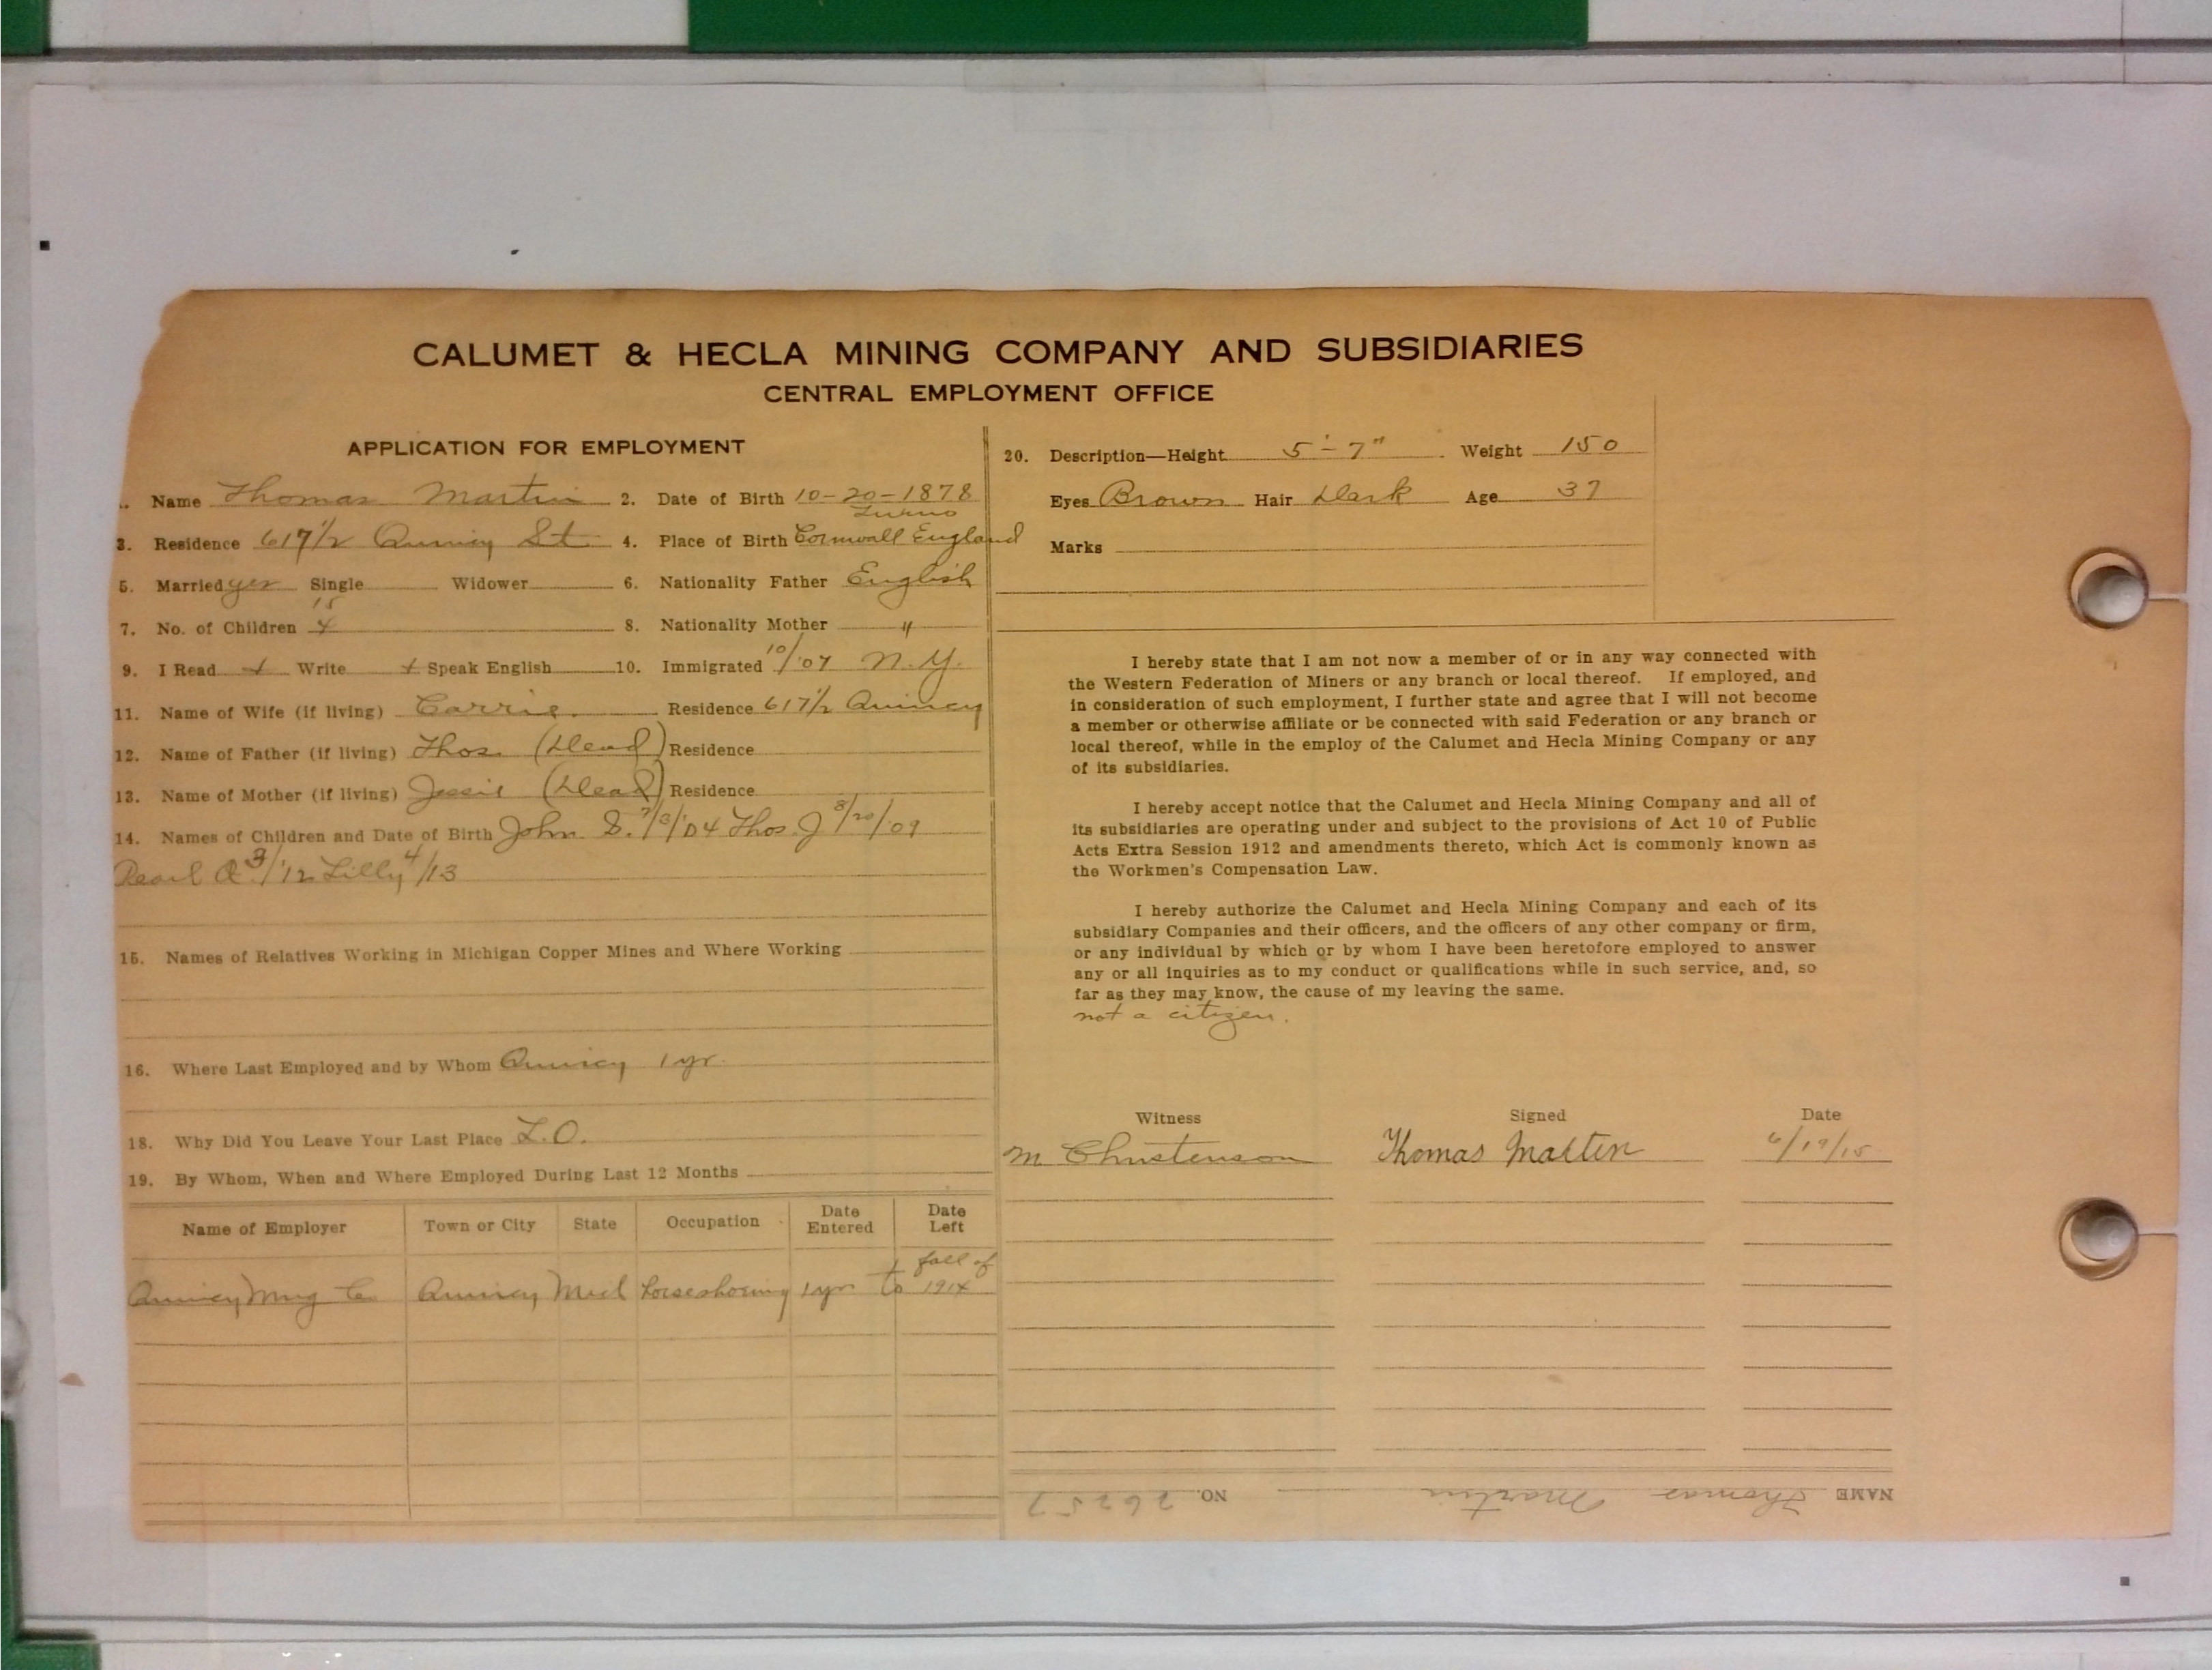 CALUMET & HECLA MINING COMPANY AND SUBSIDIARIES
CENTRAL EMPLOYMENT OFFICE
APPLICATION FOR EMPLOYMENT
Name Thomas Martin 2. Date of Birth 10-20-1878
3. Residence 617 1/2 Quincy St. 4. Place of Birth Cornwall England
5. Married yes Single Widower 6. Nationality Father English
15
7. No. of Children 4 8. Nationality Mother "
9. I Read + Write + Speak English 10. Immigrated 10/'07 N.Y.
11. Name of Wife (if living) Carrie. Residence 617 1/2 Quincy
12. Name of Father (if living) Thos. (Dead) Residence
13. Name of Mother (if living) Jessie (Dead) Residence
14. Names of Children and Date of Birth John S. 7/3/'04 Thos. J 8/20/'09
Pearl 3/'12 Lilly 4/13
15. Names of Relatives Working in Michigan Copper Mines and Where Working
16. Where Last Employed and by Whom Quincy 1 yr.
18. Why Did You Leave Your Last Place L.O.
19. By Whom, When and Where Employed During Last 12 Months
Name of Employer Town or City State Occupation Date Entered Date Left
Quincy Mng Co Quincy Mich horseshoeing 1 yr to fall of 1914
20. Description—Height 5'-7" Weight 150
Eyes Brown Hair Dark Age 37
Marks
I hereby state that I am not now a member of or in any way connected with
the Western Federation of Miners or any branch or local thereof. If employed, and
in consideration of such employment, I further state and agree that I will not become
a member or otherwise affiliate or be connected with said Federation or any branch or
local thereof, while in the employ of the Calumet and Hecla Mining Company or any
of its subsidiaries.
I hereby accept notice that the Calumet and Hecla Mining Company and all of
its subsidiaries are operating under and subject to the provisions of Act 10 of Public
Acts Extra Session 1912 and amendments thereto, which Act is commonly known as
the Workmen's Compensation Law.
I hereby authorize the Calumet and Hecla Mining Company and each of its
subsidiary Companies and their officers, and the officers of any other company or firm,
or any individual by which or by whom I have been heretofore employed to answer
any or all inquiries as to my conduct or qualifications while in such service, and, so
far as they may know, the cause of my leaving the same.
not a citizen.
Witness Signed Date
M Christenson Thomas Martin 6/19/15
NAME Thomas Martin NO. 26257